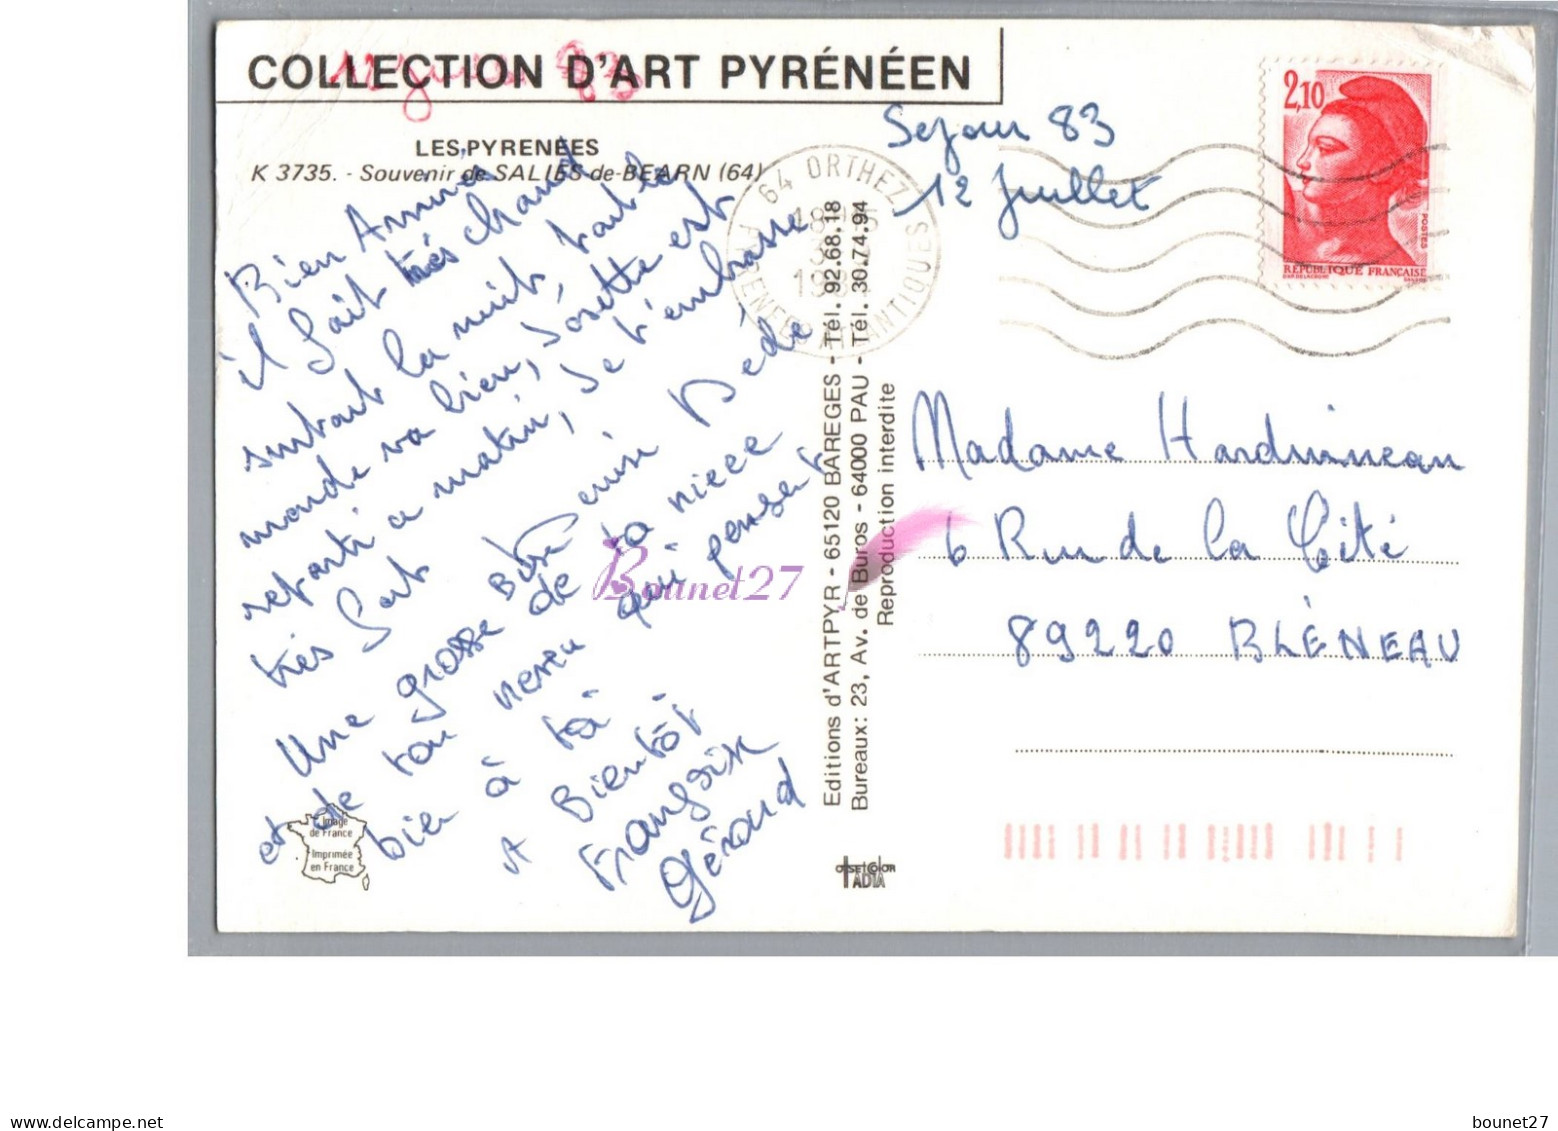 COLLECTION D'ART PYRÉNÉEN
12 83
LES PYRENEES
K 3735. - Souvenir de SALIES-de-BEARN (64)
Bien Arrivés
il fait très chaud
surtout la nuit, tout le
monde va bien, Josette est
reparti a matin, je t'embrasse
très fort Dédé
Une grosse bise
de ta niece
et de ton neveu qui pensent
bien à toi
A Bientôt
Françoise
Gérard
Sejour 83
12 Juillet
64 ORTHEZ
PYRENEES ATLANTIQUES
2,10
POSTES
RÉPUBLIQUE FRANÇAISE
Madame Harduineau
6 Rue de la Cité
89220 BLÉNEAU
Editions d'ARTPYR - 65120 BAREGES - Tél. 92.68.18
Bureaux: 23, Av. de Buros - 64000 PAU - Tél. 30.74.94
Reproduction interdite
Image
de France
Imprimée
en France
OFFSET COLOR
ADIA
Bounet27
www.delcampe.net
bounet27